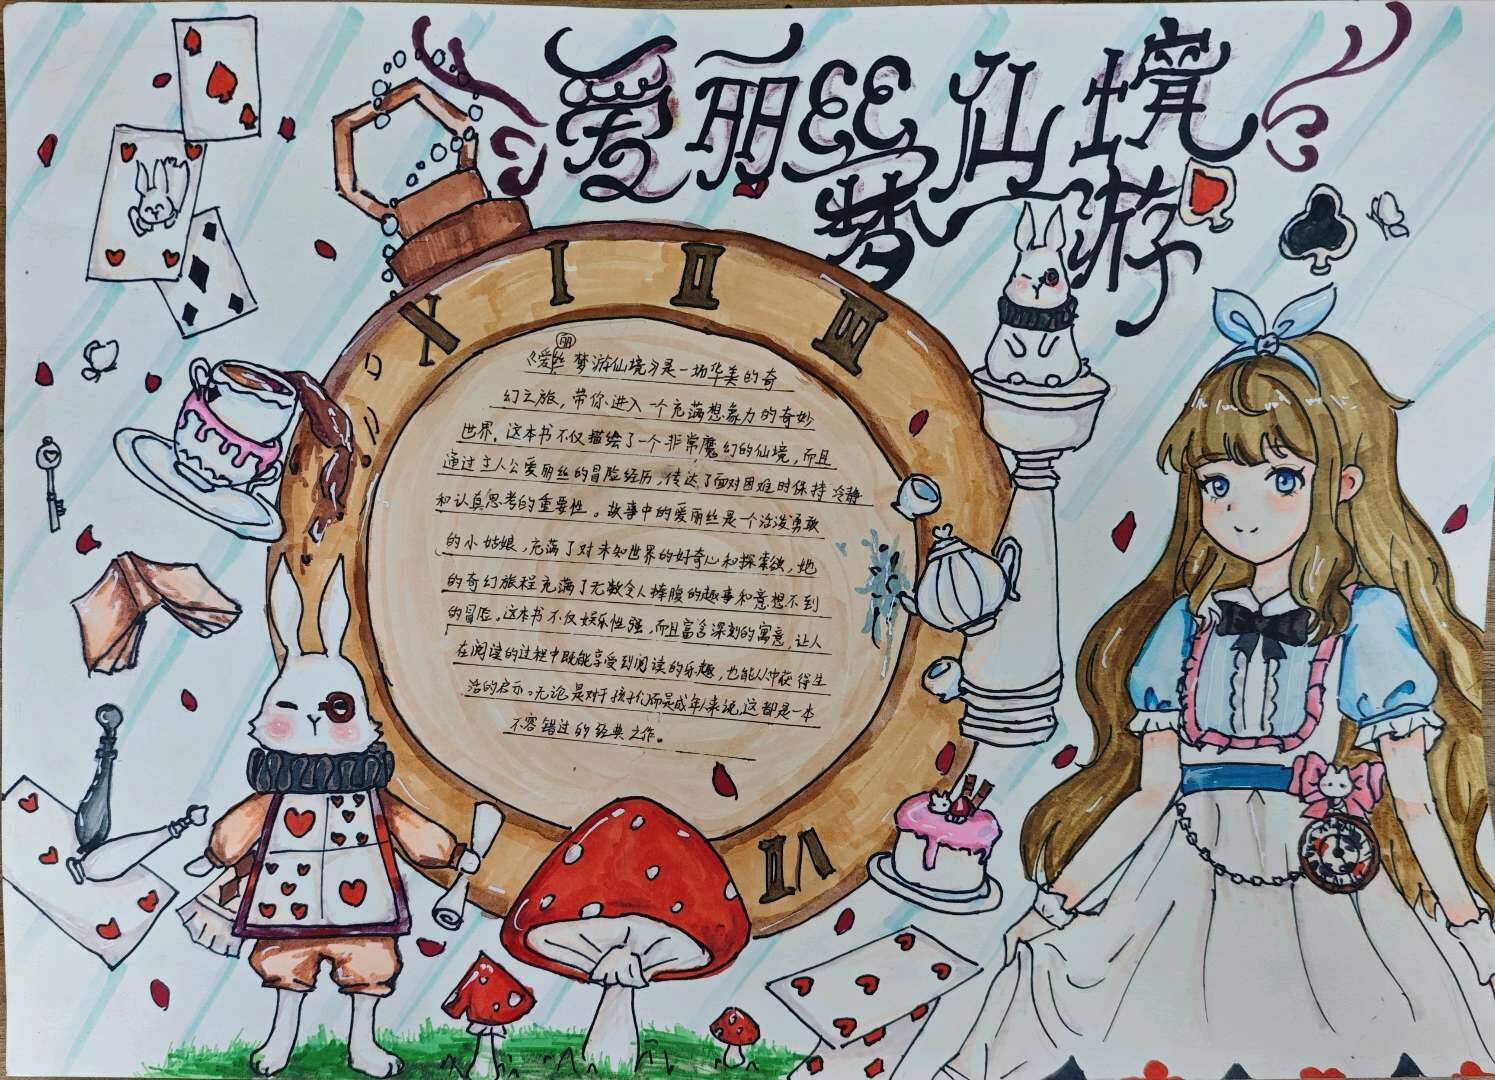 爱丽丝仙境
梦游
X I II III
丽
《爱丝梦游仙境》是一场华美的奇
幻之旅，带你进入一个充满想象力的奇妙
世界。这本书不仅描绘了一个非常魔幻的仙境，而且
通过主人公爱丽丝的冒险经历，传达了面对困难时保持冷静
和认真思考的重要性。故事中的爱丽丝是一个活泼勇敢
的小姑娘，充满了对未知世界的好奇心和探索欲，她
的奇幻旅程充满了无数令人捧腹的趣事和意想不到
的冒险。这本书不仅娱乐性强，而且富含深刻的寓意，让人
在阅读的过程中既能享受到阅读的乐趣，也能从中获得生
活的启示。无论是对于孩子们而是成年人来说，这都是一本
不容错过的经典之作。
VI